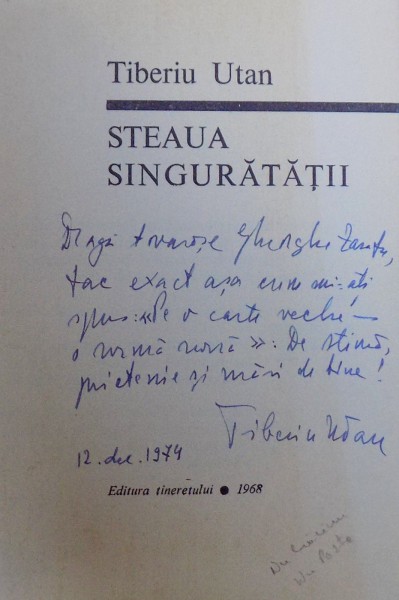 Tiberiu Utan
STEAUA
SINGURĂTĂȚII
Dragă tovarășe Gheorghe
fac exact așa cum mi-ați
spus: «Pe o carte veche –
o urmă nouă»: De stimă,
prietenie și mări de bine!
Tiberiu Utan
12. dec. 1974
Editura tineretului ● 1968